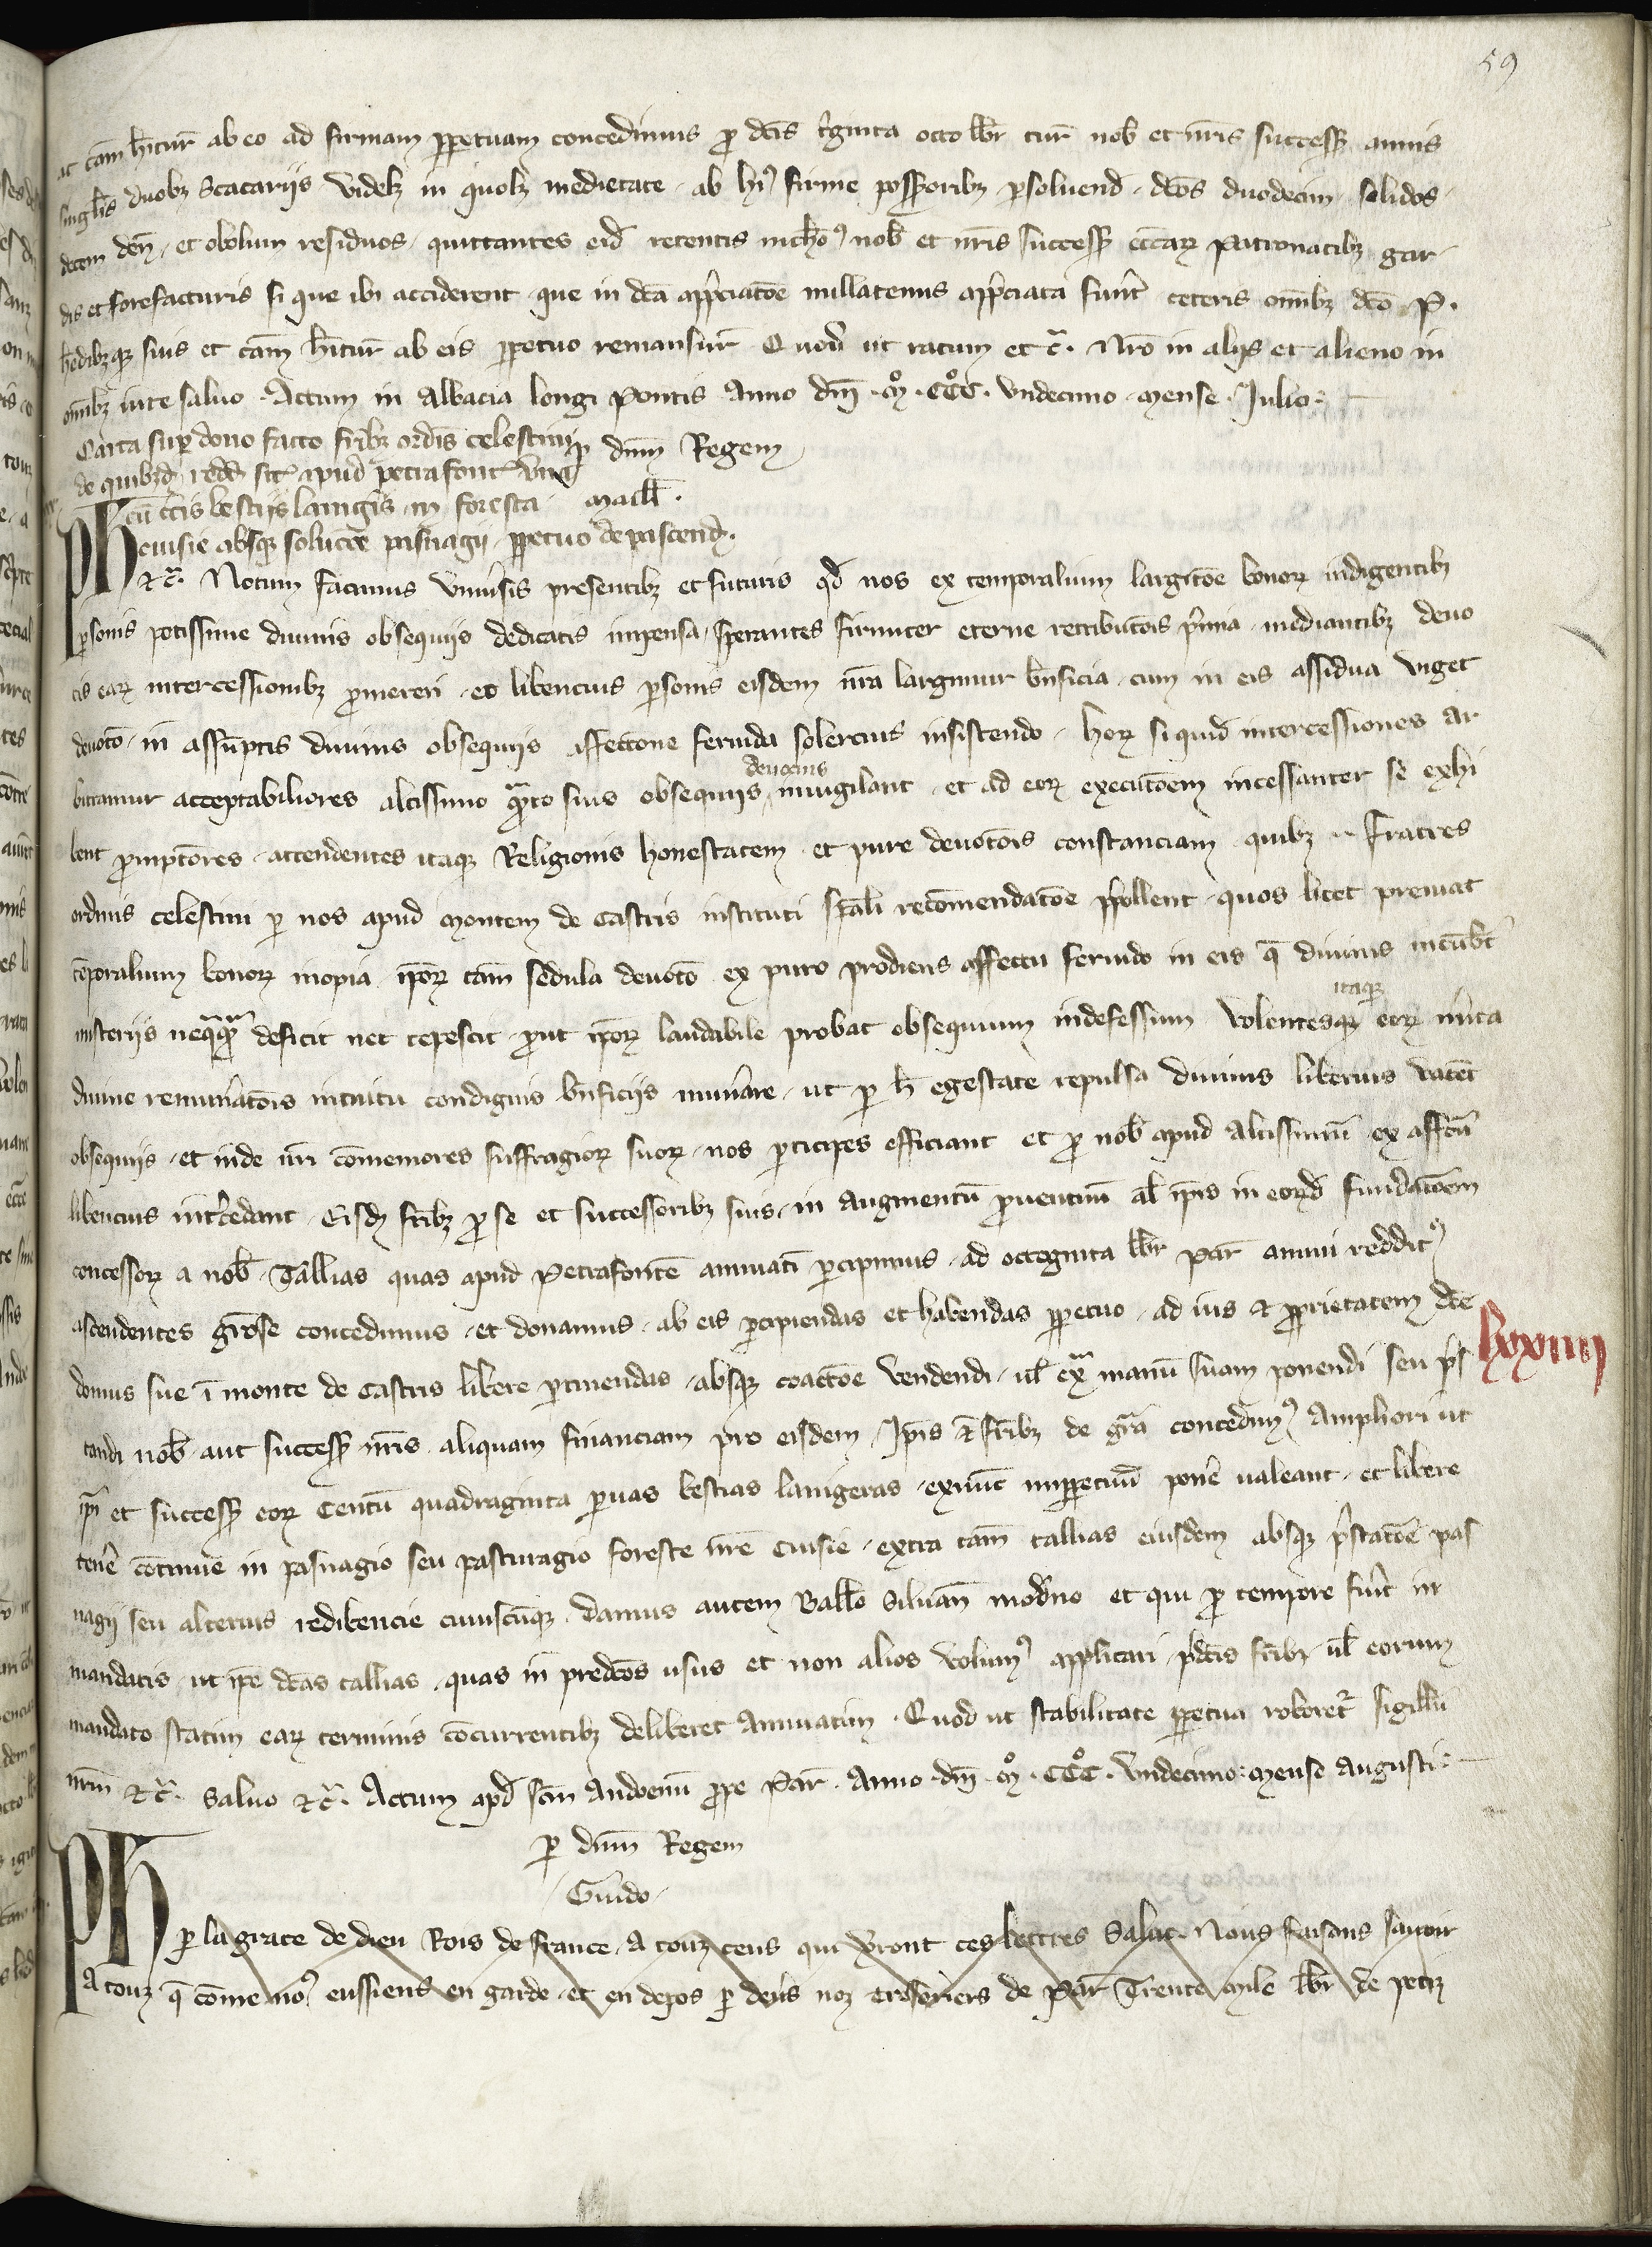 59
ac cām hītur̄ ab eo ad firmam ꝑpetuam concedimus ꝓ dc̄is tͥginta octo libr̄ tur̄ nob̄ et nr̄is success̄ annis
singl̄is duobȝ Scacariis videlȝ in quolȝ medietate ab huiꝰ firme possessoribȝ ꝑsoluend̄ dc̄os duodecim solidos
decem den̄ et obolum residuos quittantes eid̄ retentis nichoꝰ nob̄ et nr̄is success̄ eccār̄ patronatibȝ gar
dis et forefacturis si que ibi acciderent que in dc̄a app̄ciatōe nullatenus app̄ciata fuer̄t ceteris om̄ibȝ dc̄o P.
heredibȝqȝ suis et cām hītur̄ ab eis ꝑpetuo remansur̄ Quod ut ratum et c̄. Nr̄o in aliis et alieno in
om̄ibȝ iure saluo. Actum in Abbacia longi Pontis Anno dn̄i .Mͦ.CCCͦ. undecimo mense Julio.
Carta suꝑ dono facto fr̄ibȝ ordīs celestini ꝑ dn̄m Regem
de quibȝd̄ redd̄ sit̄ apud petrafont̄
cū c̄tis bestiis lanigīs in foresta Maill̄.
Cuisie absqȝ soluc̄oe pasnagii ꝑpetuo depascend̄.
Ph
et c̄. Notum facimus vniūsis presentibȝ et futuris qd̄ nos ex temporalium largitōe bonor̄ indigentibȝ
ꝑsonis potissime diuinis obsequiis dedicatis impensa sperantes firmiter eterne retributōis p̄mia mediantibȝ deuo
tis ear̄ intercessionibȝ ꝓmereri eo libencius ꝑsonis eisdem nr̄a largimur bn̄ficia cum in eis assidua viget
deuotō in assūptis diuinis obsequiis affectione feruida solercius insistendo hor̄ siquid̄ intercessiones ar
bitramur acceptabiliores altissimo qͣnto suis obsequiis deuocius inuigilant et ad eor̄ executōem incessanter se exhi
bent ꝓmptōres attendentes itaqȝ Religionis honestatem et pure deuotōis constanciam quibȝ .. Fratres
ordinis celestini ꝑ nos apud Montem de Castris instituti spāli recōmendatōe p̄pollent quos licet premat
tēporalium bonor̄ inopia ip̄or̄ tām sedula deuotō ex puro prodiens affectu feruido in eis q̄ diuinis incūbt̄
misteriis neqͣqͣm deficit nec tepescit ꝓut ip̄or̄ laudabile probat obsequium indefessum volentes itaqȝ eor̄ mēita
diuine remun̄atōis intuitu condignis bn̄ficiis munīre ut ꝑ h̄ egestate repulsa diuinis liberius vacēt
obsequiis et inde nr̄i cōmemores suffragior̄ suor̄ nos ꝑticipes efficiant et ꝓ nob̄ apud Altissimū ex affcū
libencius int̄cedant Eisd̄ fr̄ibȝ ꝓ se et successoribȝ suis in augmentū ꝓuentuū al̄ ip̄is in eord̄ fundatōem
concessor̄ a nob̄ Tallias quas apud Petrafontē annuatī ꝑcipimus ad octoginta libr̄ Par̄ annui redditꝰ
ascendentes gͦsse concedimus et donamus ab eis ꝑcipiendas et habendas ꝑpetuo ad ius et ꝓprietatem dc̄e
domus sue ī monte de Castris libere ꝑtinendas absqȝ coactōe vendendi ul̄ exͣ manū suam ponendi seu p̄s
lxxiiii
tandi nob̄ aut success̄ nr̄is aliquam financiam pro eisdem Ip̄is et fr̄ibȝ de gr̄a concedimꝰ Ampliori ut
ip̄i et success̄ eor̄ Centū quadraginta ꝑuas bestias lanigeras exnūc imꝑpetuū pon̄e ualeant et libere
ten̄e cōtinue in pasnagio seu pasturagio foreste nr̄e Cuisie extra tām tallias eiusdem absqȝ p̄statōe pas
nagii seu alterius redibencie cuiuscūqȝ. Damus autem Ballio Siluan̄ mod̄no et qui ꝓ tempore fuer̄t in
mandatis ut ip̄e dc̄as tallias quas in predc̄os usus et non alios volumꝰ applicari p̄dc̄is fr̄ibȝ ul̄ eorum
mandato statim ear̄ terminis cōcurrentibȝ deliberet Annuatim. Quod ut stabilitate ꝑpetua roboret̄ sigillū
nr̄m et c̄. Saluo et c̄. Actum apd̄ scm̄ Audoenū prope Par̄. Anno dn̄i .Mͦ.CCCͦ. undecimo mense Augusti.
ꝑ dn̄m Regem
Guido
Ph
ꝑ la grace de dieu Rois de france A touz ceus qui v̄ront ces lettres Salut. Nous faisons sauoir
A touz q̄ cōme noꝰ eussiens en garde et en depos ꝑ deūs noz tresoriers de Par̄ Trente mile libr̄ de petiz